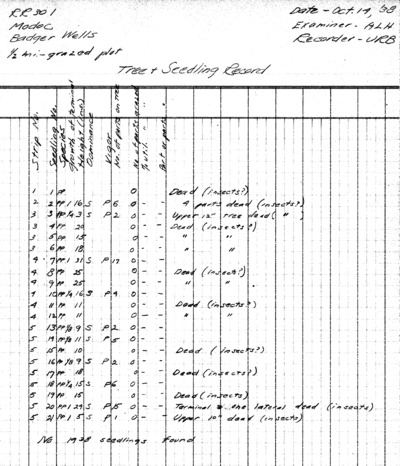 RR 301
Modoc
Badger Wells
1/2 mi-grazed plot
Date - Oct. 19, '38
Examiner - ALH
Recorder - URB
Tree & Seedling Record
Strip No.
Seedling No.
Species
Growth of terminal
Height (ins.)
Dominance
Vigor
No. of parts on tree
No. of parts grazed
% util. " "
Part or parts "
1 1 PP 0 Dead (insects?)
2 2 PP 1 16 S P 6 0 - - 4 parts dead (insects?)
3 3 PP 3 S P 2 0 - - Upper 12" tree dead ( " )
3 4 PP 20 0 - - Dead (insects?)
3 5 PP 15 0 - - " "
3 6 PP 18 0 - - " "
4 7 PP 1 31 S P 17 0 - -
4 8 PP 25 0 - - Dead (insect?)
4 9 PP 25 0 - - " "
4 10 PP 1/4 16 S P 4 0 - -
4 11 PP 11 0 - - Dead (insects?)
4 12 PP 11 0 - - " "
5 13 PP 9 S P 2 0 - -
5 14 PP 11 S P 5 0 - -
5 15 PP 10 0 - - Dead (insects?)
5 16 PP 9 S P 2 0 - -
5 17 PP 18 0 - - Dead (insects?)
5 18 PP 1/4 15 S P 6 0 - -
5 19 PP 15 0 - - Dead (insects)
5 20 PP 1 29 S P 15 0 - - Terminal & one lateral dead (insects)
5 21 PP 1 5 S P 1 0 - - Upper 10" dead (insects)
No 1938 seedlings found